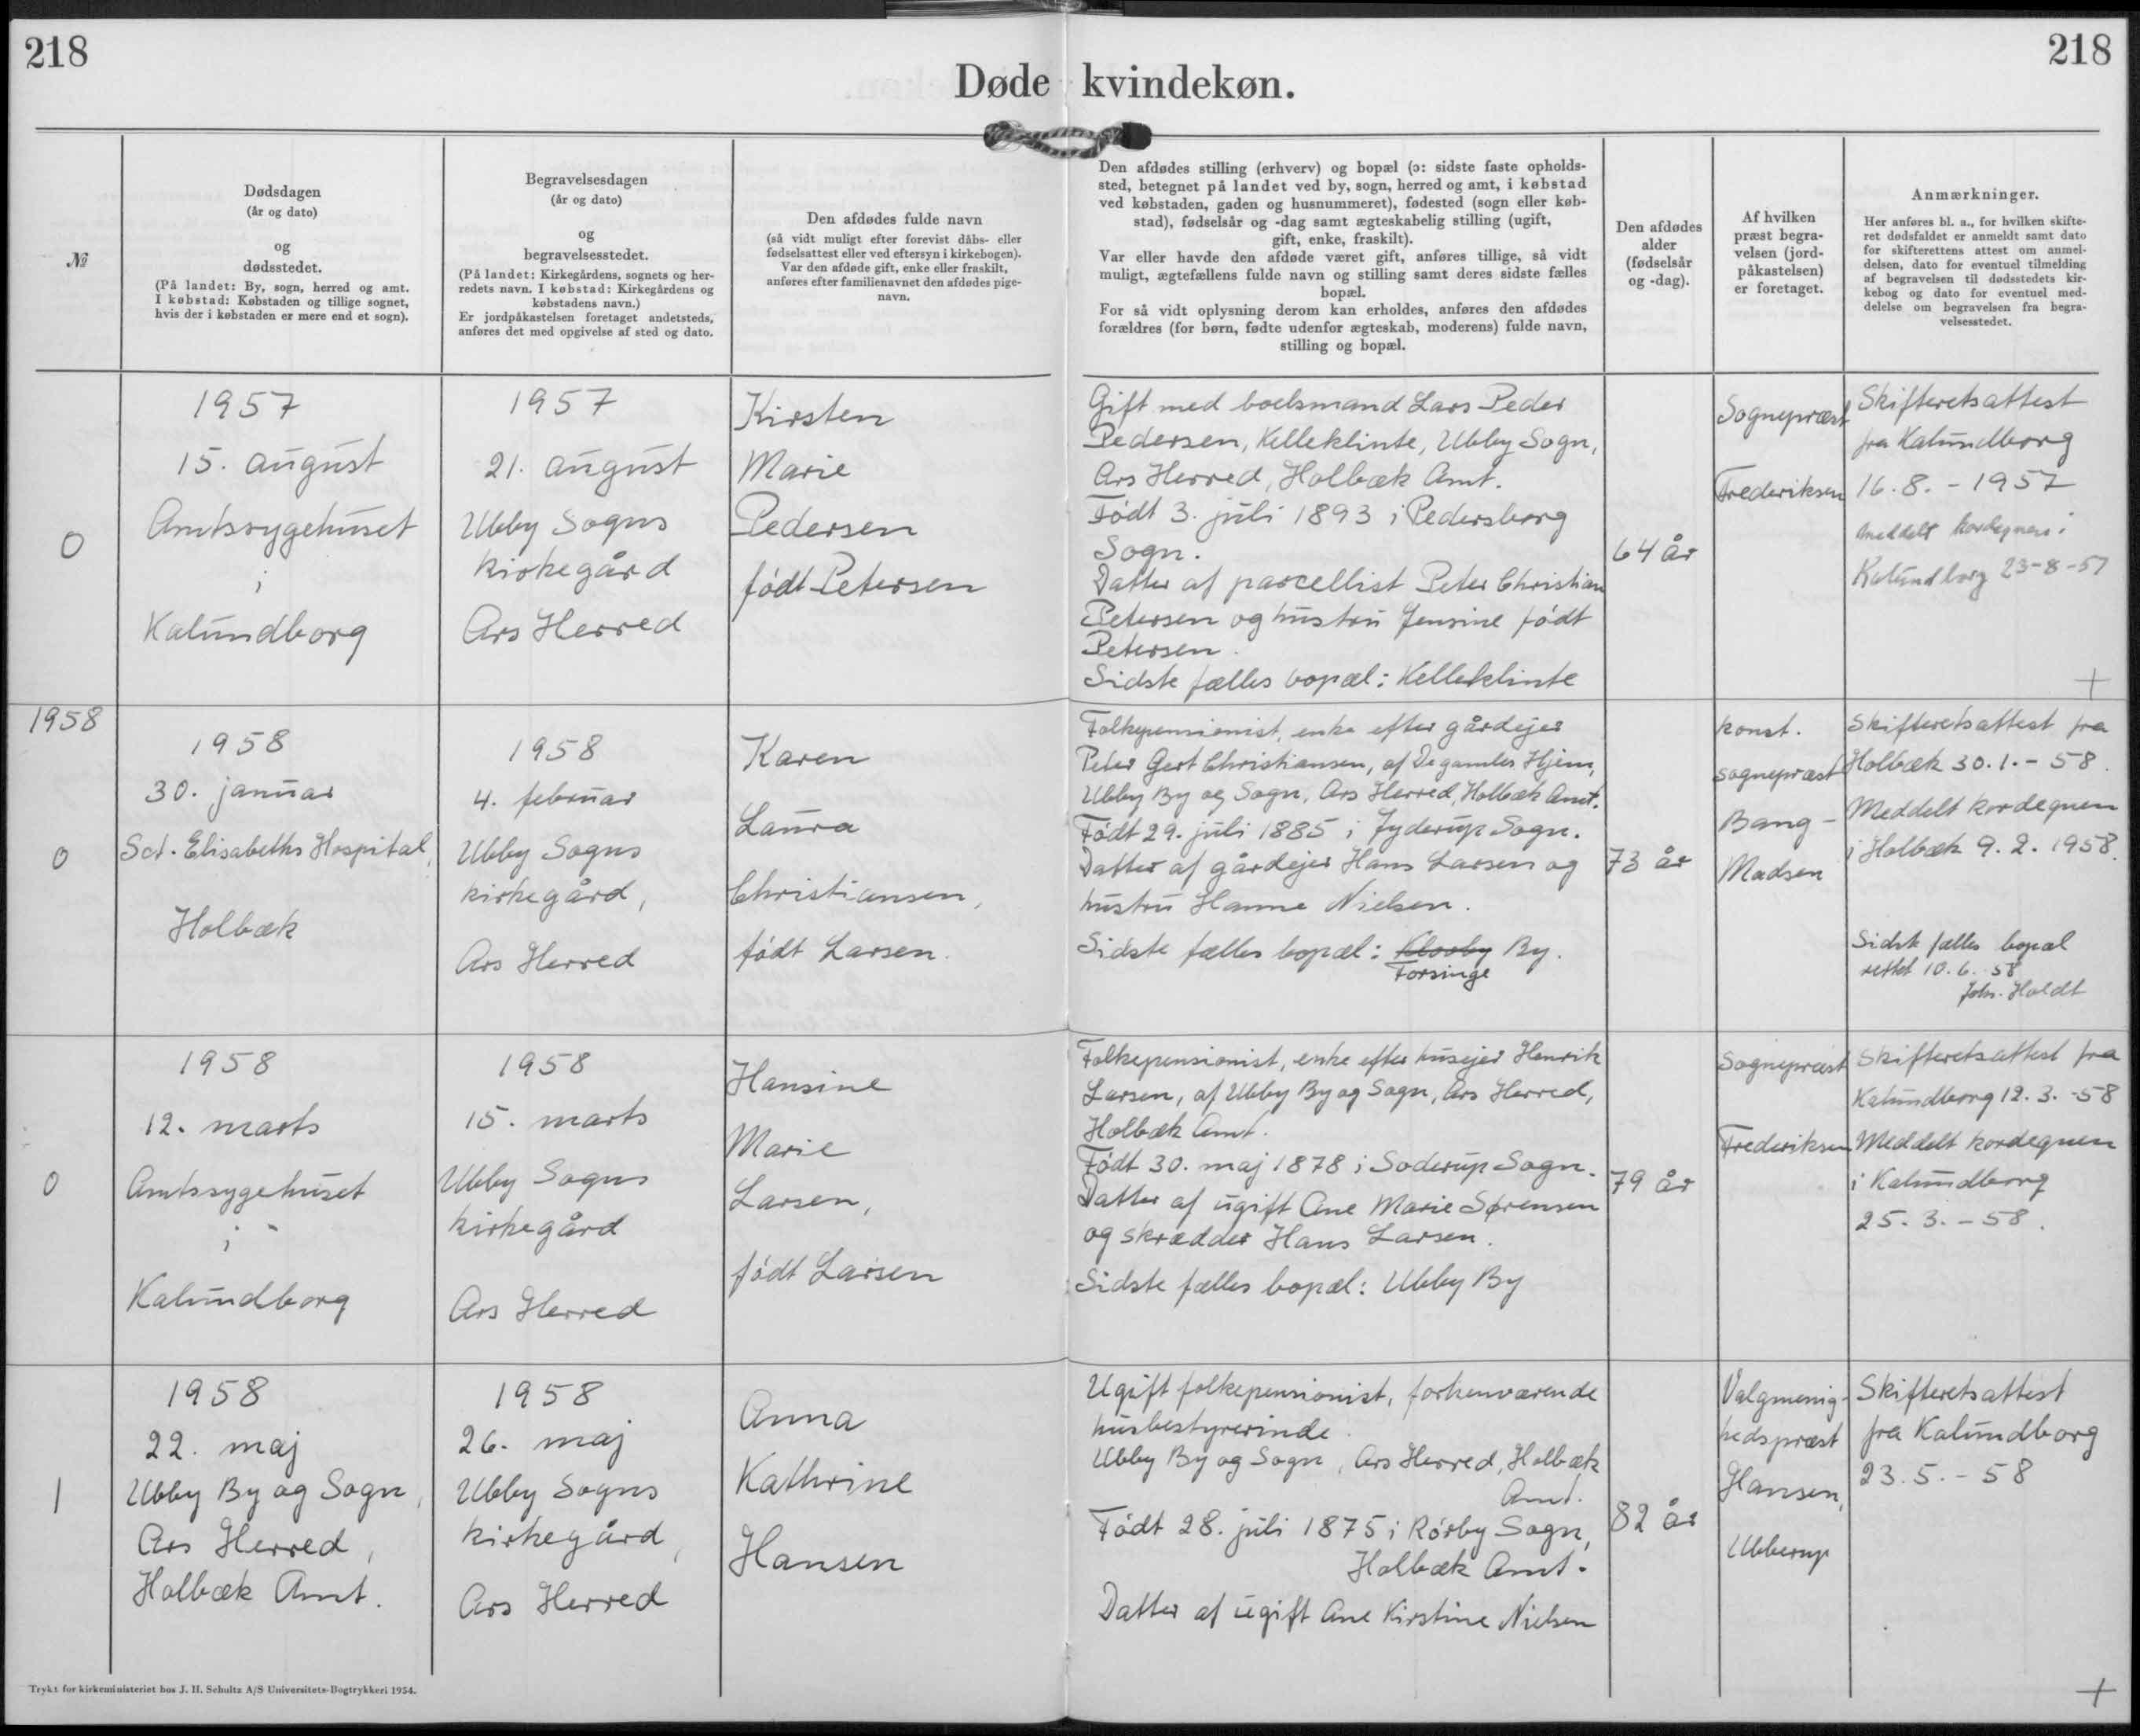 218
218
Døde kvindekøn.
№
Dødsdagen
(år og dato)
og
dødsstedet.
(På landet: By, sogn, herred og amt.
I købstad: Købstaden og tillige sognet,
hvis der i købstaden er mere end et sogn).
Begravelsesdagen
(år og dato)
og
begravelsesstedet.
(På landet: Kirkegårdens, sognets og her-
redets navn. I købstad: Kirkegårdens og
købstadens navn.)
Er jordpåkastelsen foretaget andetsteds,
anføres det med opgivelse af sted og dato.
Den afdødes fulde navn
(så vidt muligt efter forevist dåbs- eller
fødselsattest eller ved eftersyn i kirkebogen).
Var den afdøde gift, enke eller fraskilt,
anføres efter familienavnet den afdødes pige-
navn.
Den afdødes stilling (erhverv) og bopæl (ɔ: sidste faste opholds-
sted, betegnet på landet ved by, sogn, herred og amt, i købstad
ved købstaden, gaden og husnummeret), fødested (sogn eller køb-
stad), fødselsår og -dag samt ægteskabelig stilling (ugift,
gift, enke, fraskilt).
Var eller havde den afdøde været gift, anføres tillige, så vidt
muligt, ægtefællens fulde navn og stilling samt deres sidste fælles
bopæl.
For så vidt oplysning derom kan erholdes, anføres den afdødes
forældres (for børn, fødte udenfor ægteskab, moderens) fulde navn,
stilling og bopæl.
Den afdødes
alder
(fødselsår
og -dag).
Af hvilken
præst begra-
velsen (jord-
påkastelsen)
er foretaget.
Anmærkninger.
Her anføres bl. a., for hvilken skifte-
ret dødsfaldet er anmeldt samt dato
for skifterettens attest om anmel-
delsen, dato for eventuel tilmelding
af begravelsen til dødsstedets kir-
kebog og dato for eventuel med-
delelse om begravelsen fra begra-
velsesstedet.
0
1957
15. august
Amtssygehuset
i
Kalundborg
1957
21. august
Ubby Sogns
kirkegård
Ars Herred
Kirsten
Marie
Pedersen
født Petersen
Gift med boelsmand Lars Peder
Pedersen, Kelleklinte, Ubby Sogn,
Ars Herred, Holbæk Amt.
Født 3. juli 1893 i Pedersborg
Sogn.
Datter af parcellist Peter Christian
Petersen og hustru Jensine født
Petersen.
Sidste fælles bopæl: Kelleklinte
64 år
Sognepræst
Frederiksen
Skifteretsattest
fra Kalundborg
16.8. - 1957
meddelt kordegnen i
Kalundborg 23-8-57
+
1958
0
1958
30. januar
Sct. Elisabeths Hospital,
Holbæk
1958
4. februar
Ubby Sogns
kirkegård,
Ars Herred
Karen
Laura
Christiansen,
født Larsen.
Folkepensionist, enke efter gårdejer
Peter Gert Christiansen, af De gamles Hjem,
Ubby By og Sogn, Ars Herred, Holbæk Amt.
Født 29. juli 1885 i Jyderup Sogn.
Datter af gårdejer Hans Larsen og
hustru Hanne Nielsen.
Sidste fælles bopæl: Klovby By.
Forsinge
73 år
konst.
sognepræst
Bang-
Madsen
Skifteretsattest fra
Holbæk 30.1.- 58.
Meddelt kordegnen
i Holbæk 9.2.1958.
Sidste fælles bopæl
rettet 10.6.58
Johs. Holdt
0
1958
12. marts
Amtssygehuset
i
Kalundborg
1958
15. marts
Ubby Sogns
kirkegård
Ars Herred
Hansine
Marie
Larsen,
født Larsen
Folkepensionist, enke efter husejer Henrik
Larsen, af Ubby By og Sogn, Ars Herred,
Holbæk Amt.
Født 30. maj 1878 i Soderup Sogn.
Datter af ugift Ane Marie Sørensen
og skrædder Hans Larsen.
Sidste fælles bopæl: Ubby By
79 år
Sognepræst
Frederiksen
Skifteretsattest fra
Kalundborg 12.3.-58
Meddelt kordegnen
i Kalundborg
25.3.-58.
1
1958
22. maj
Ubby By og Sogn,
Ars Herred,
Holbæk Amt.
1958
26. maj
Ubby Sogns
kirkegård,
Ars Herred
Anna
Kathrine
Hansen
Ugift folkepensionist, forhenværende
husbestyrerinde.
Ubby By og Sogn, Ars Herred, Holbæk
Amt.
Født 28. juli 1875 i Rørby Sogn,
Holbæk Amt.
Datter af ugift Ane Kirstine Nielsen
82 år
Valgmenig-
hedspræst
Hansen,
Ubberup
Skifteretsattest
fra Kalundborg
23.5.-58
+
Trykt for kirkeministeriet hos J. H. Schultz A/S Universitets-Bogtrykkeri 1954.